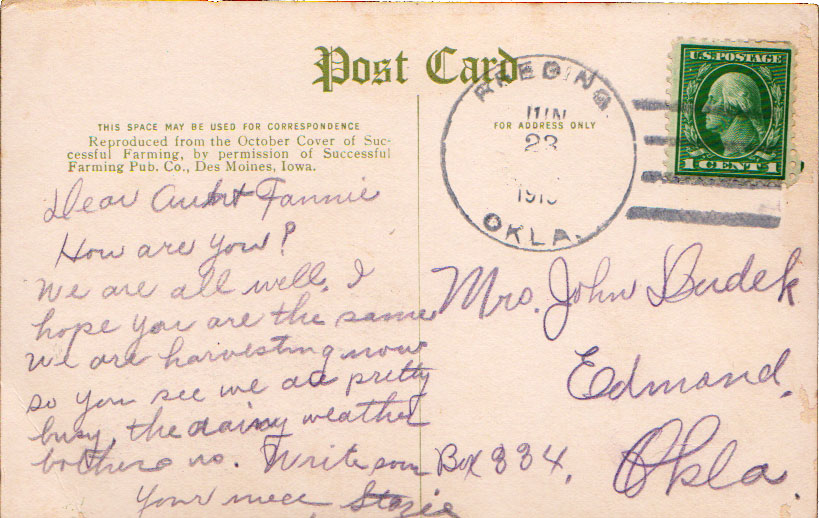 Post Card
THIS SPACE MAY BE USED FOR CORRESPONDENCE
Reproduced from the October Cover of Suc-
cessful Farming, by permission of Successful
Farming Pub. Co., Des Moines, Iowa.
FOR ADDRESS ONLY
REEDING
JUN
23
OKLA.
U.S. POSTAGE
1 CENT 1
Dear Aunt Fannie
How are you?
We are all well. I
hope you are the same
We are harvesting now
so you see we are pretty
busy, the rainy weather
bothers us. Write soon
Your niece
Mrs. John Dudek
Edmond,
Box 334, Okla.